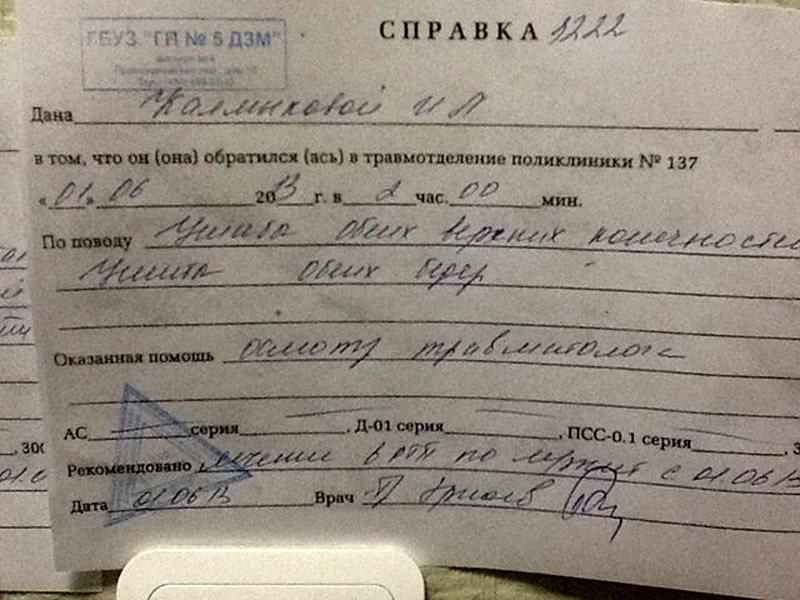 СПРАВКА 1222
ГБУЗ "ГП № 5 ДЗМ"
Дана Калмыковой И Л
в том, что он (она) обратился (ась) в травмотделение поликлиники № 137
«01» 06 2013 г. в 2 час. 00 мин.
По поводу Ушиба обеих верхних конечностей
Ушиба обеих бедер
Оказанная помощь осмотр травматолога
АС серия , Д-01 серия , ПСС-0.1 серия
, 300
Рекомендовано лечение в РТП по с 01.06 13
Дата 01 06 13 Врач